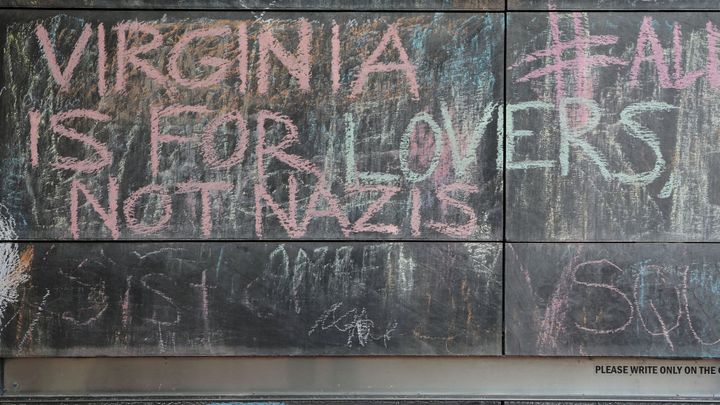 VIRGINIA
IS FOR LOVERS,
NOT NAZIS
#ALL
PLEASE WRITE ONLY ON THE